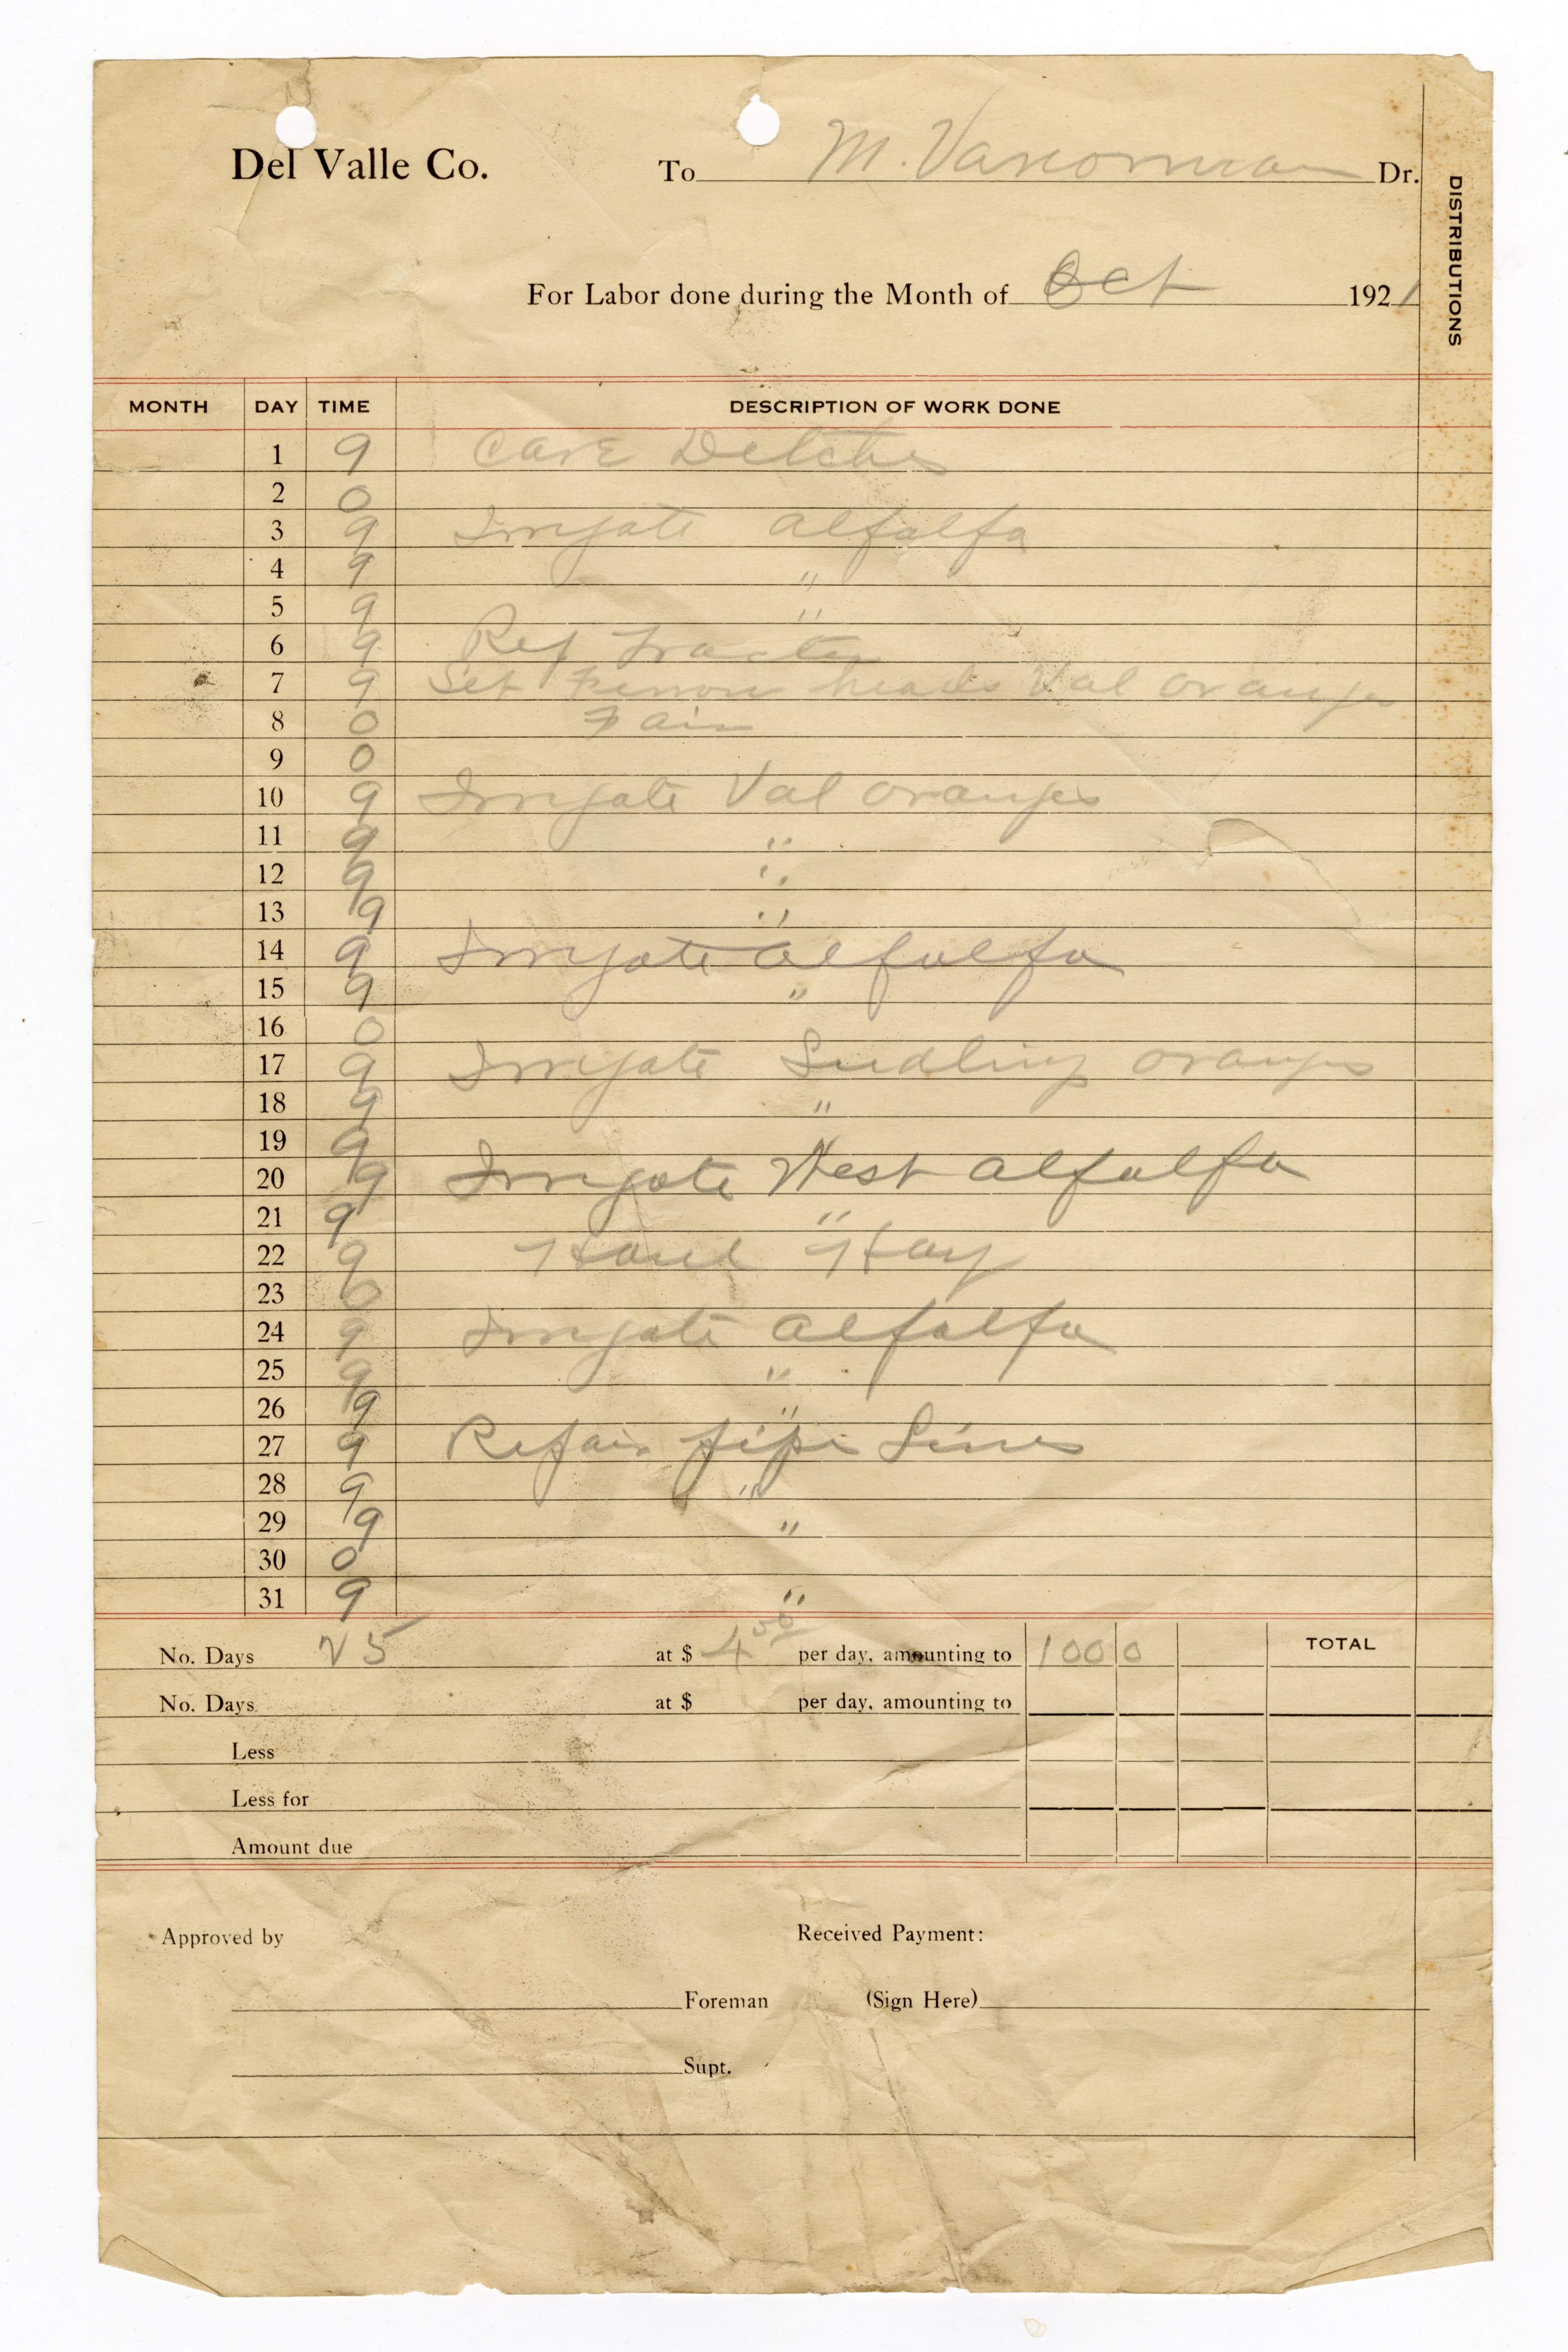 Del Valle Co. To M. Vanorman Dr.
DISTRIBUTIONS
For Labor done during the Month of Oct 1921
MONTH DAY TIME DESCRIPTION OF WORK DONE
1 9 Care Ditches
2 0
3 9 Irrigate alfalfa
4 9 "
5 9 "
6 9 Rep Tractor
7 9 Set heads Val oranges
8 0 Fair
9 0
10 9 Irrigate Val oranges
11 9 "
12 9 "
13 9 "
14 9 Irrigate alfalfa
15 9 "
16 0
17 9 Irrigate Seedling oranges
18 9 "
19 9 "
20 9 Irrigate West alfalfa
21 9 "
22 9 Haul Hay
23 0
24 9 Irrigate alfalfa
25 9 "
26 9 "
27 9 Repair pipe Lines
28 9 "
29 9 "
30 0
31 9 "
No. Days 25 at $ 4 per day, amounting to 100 0 TOTAL
No. Days at $ per day, amounting to
Less
Less for
Amount due
Approved by Received Payment:
Foreman (Sign Here)
Supt.